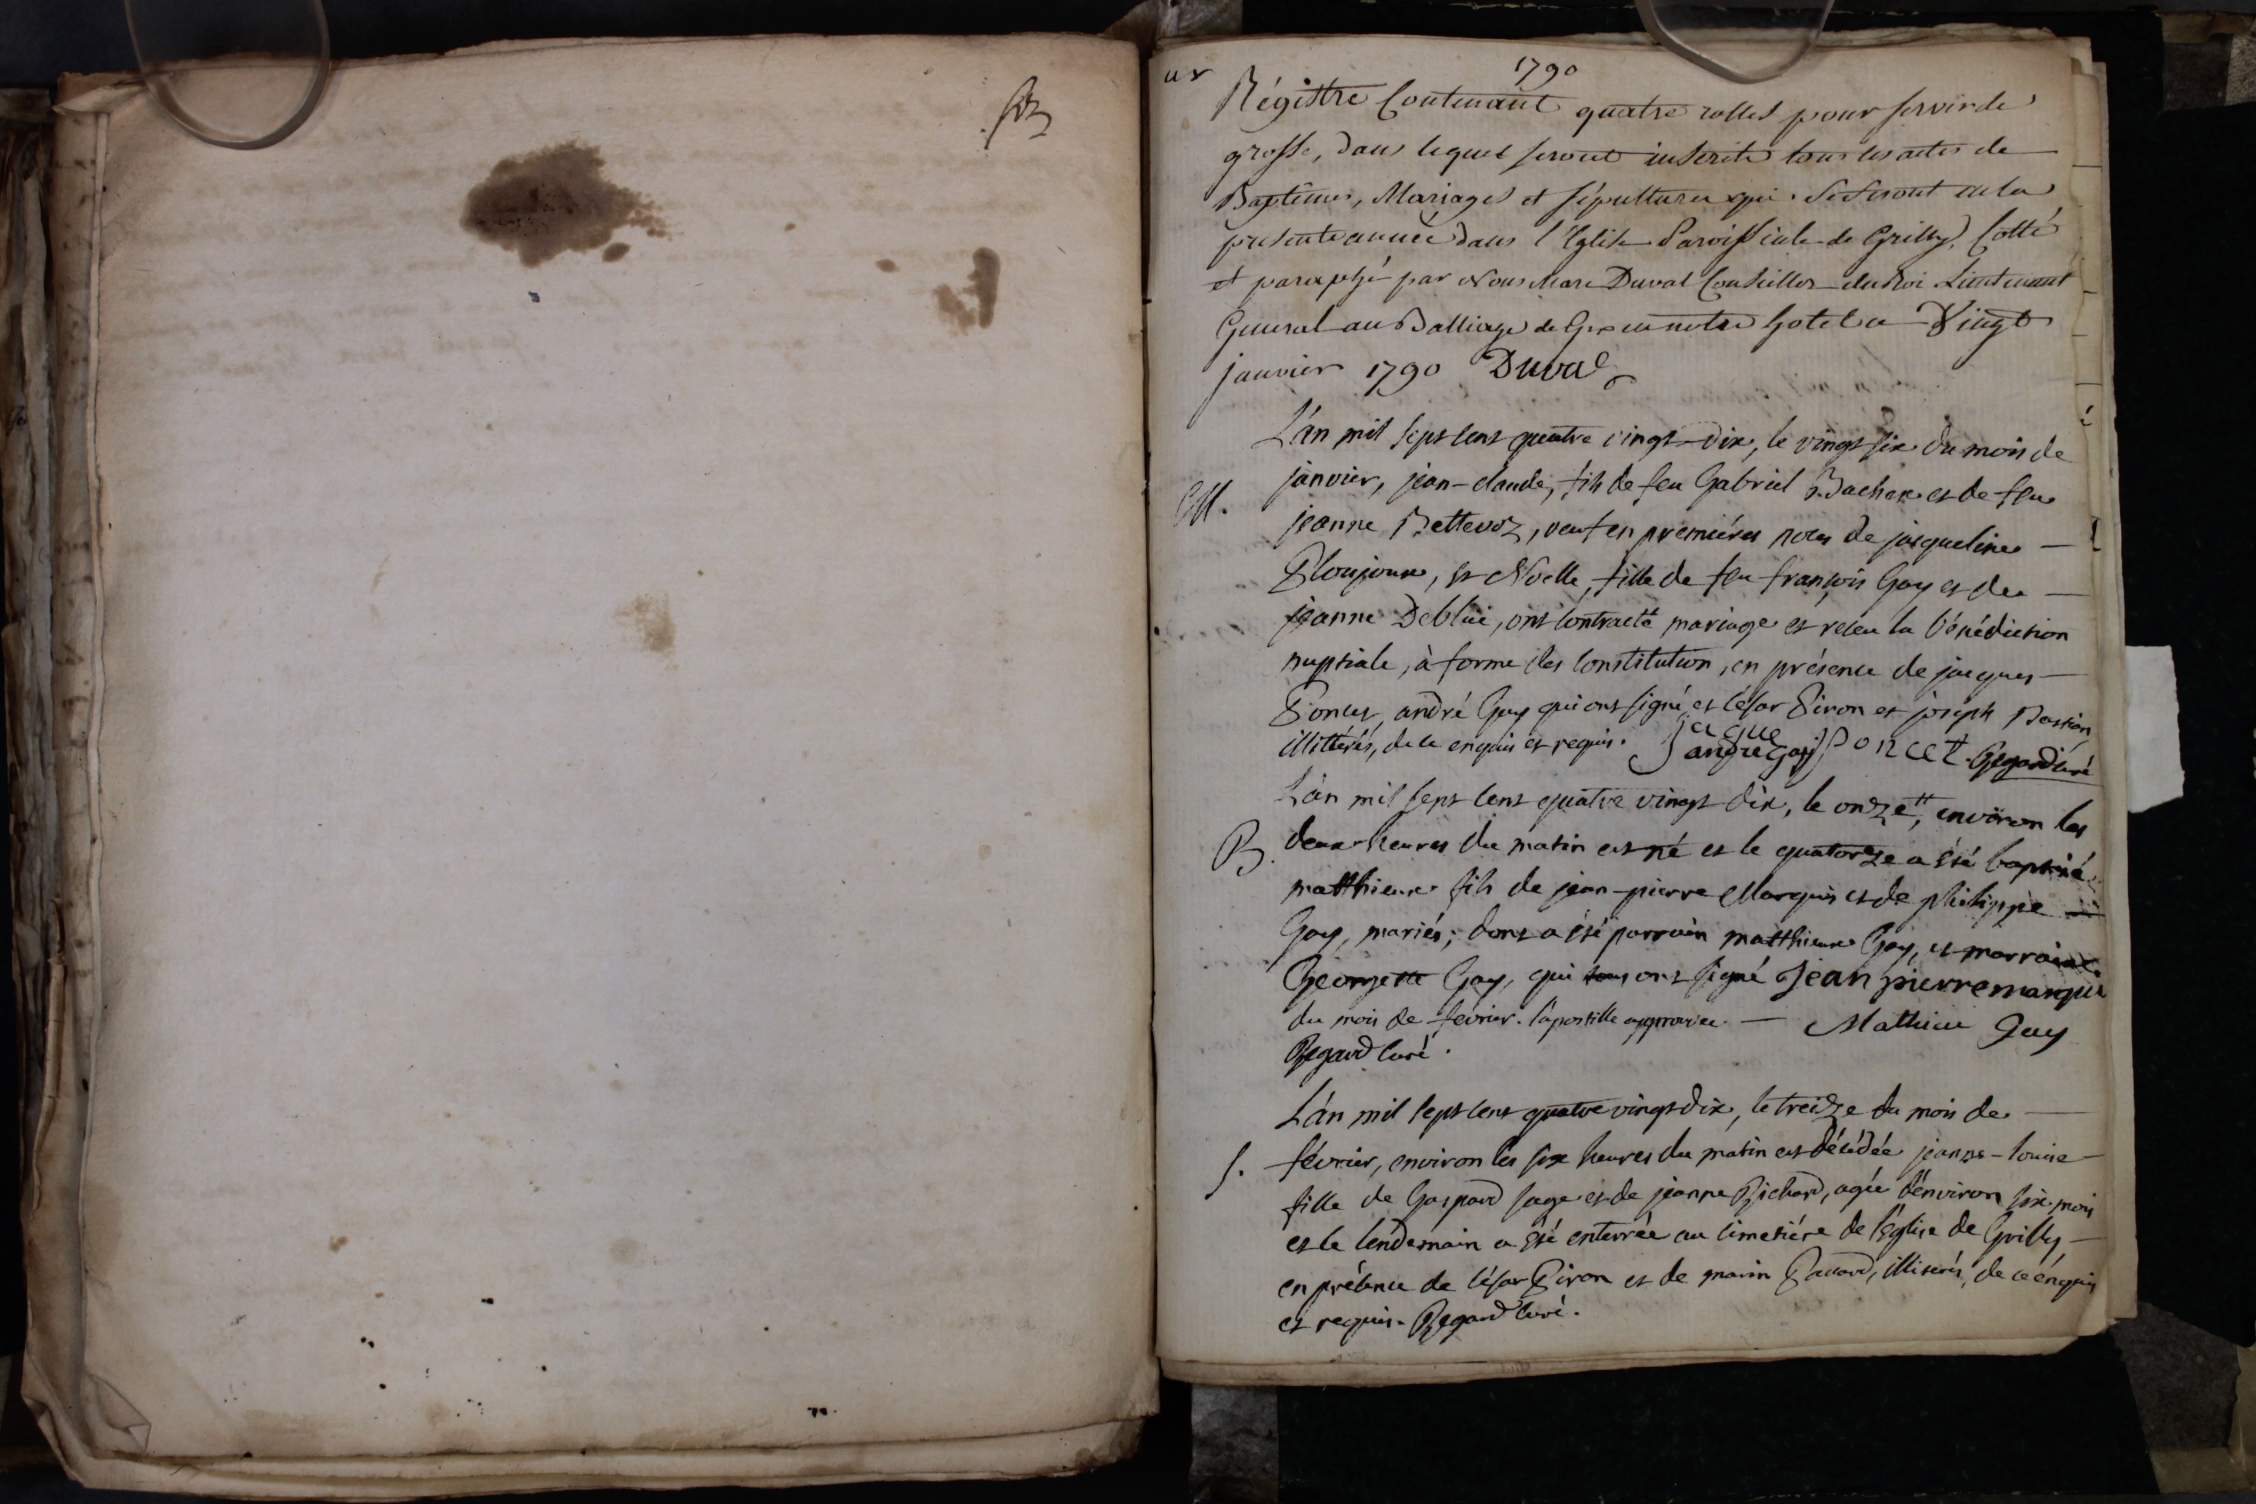 1790
Régistre Contenant quatre rolles pour servir de
grosse, dans lequel seront inscrits tous les actes de
Baptêmes, Mariages et sépultures qui se feront en la
presente année dans l'Eglise Paroissiale de Grilly, Cotté
et paraphé par Nous Marc Duval Conseiller du Roi Lieutenant
General au Balliage de Gex en notre hotel ce Vingt
janvier 1790 Duval
L'an mil sept cent quatre vingt-dix, le vingt six du mois de
janvier, jean-claude, fils de feu Gabriel Bachex et de feue
M.
jeanne Bettevoz, veuf en premiéres noces de jacqueline
Ploujoux, et Noelle, fille de feu françois Gay et de
jeanne Deblüe, ont contracté mariage et recu la bénédiction
nuptiale, à forme des constitution, en présence de jacques
Poncet, andré Gay qui ont signé et César Piron et joseph Bastian
illittérés, de ce enquis et requis. jacque Poncet
andre Gay Regard curé
L'an mil sept cent quatre vingt dix, le onze, environ les
B. deux heures du matin est né et le quatorze a été baptisé
matthieux fils de jean-pierre Marquis et de philippe
Gay, mariés; dont a été parrain matthieux Gay, et marraine
Georgette Gay, qui ont signé Jean pierre marquis
du mois de fevrier. l'apostille approuvée. Mathieu Gay
Regard curé.
L'an mil sept cent quatre vingt dix, le treize du mois de
S. février, environ les six heures du matin est décédée jeanne-louise
fille de Gaspard sage et de jeanne Richard, agée d'environ six mois
et le lendemain a été enterrée au cimetiére de l'église de Grilly,
en présence de César Piron et de marin Pacard, illiterés, de ce enquis
et requis. Regard curé.